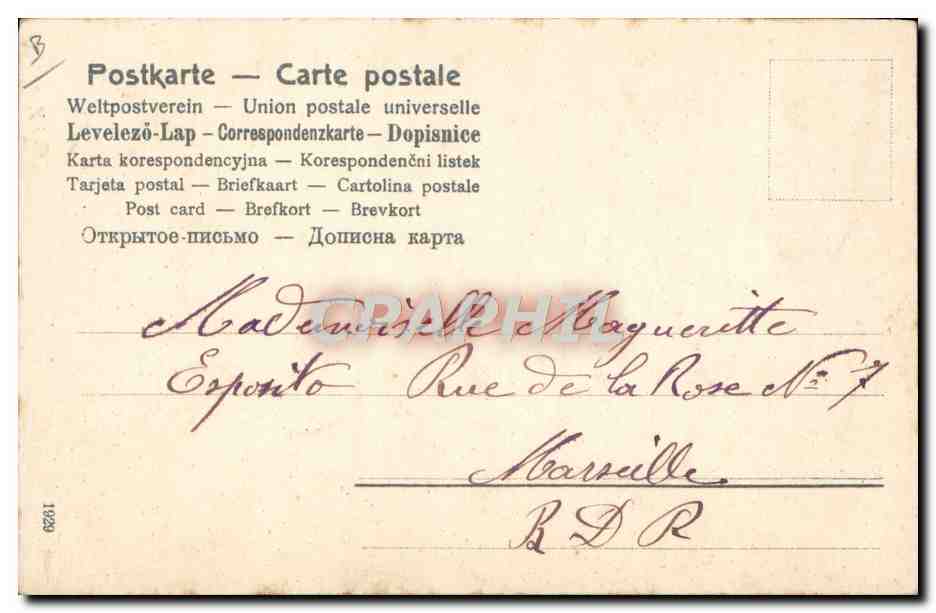 B
Postkarte — Carte postale
Weltpostverein — Union postale universelle
Levelező-Lap – Correspondenzkarte – Dopisnice
Karta korespondencyjna — Korespondenčni listek
Tarjeta postal — Briefkaart — Cartolina postale
Post card — Brefkort — Brevkort
Открытое-письмо — Дописна карта
CPAPHIL
Mademoiselle Magueritte
Esposito Rue de la Rose No 7
Marseille
B D R
1929